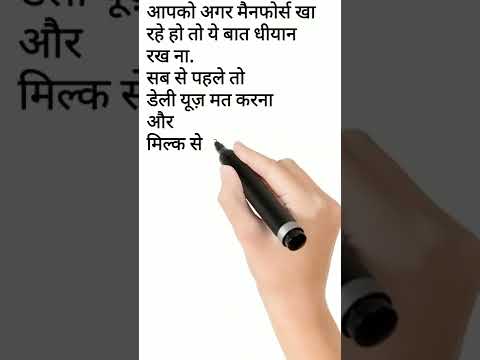 आपको अगर मैनफोर्स खा
रहे हो तो ये बात धीयान
रख ना.
सब से पहले तो
डेली यूज़ मत करना
और
मिल्क से
डेली यूज़
और
मिल्क से